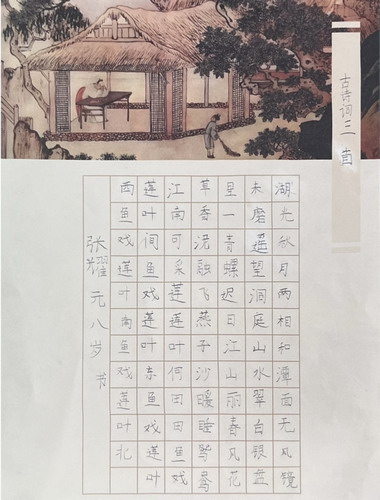 古诗词三首
湖光秋月两相和潭面无风镜
未磨遥望洞庭山水翠白银盘
里一青螺迟日江山丽春风花
草香泥融飞燕子沙暖睡鸳鸯
江南可采莲莲叶何田田鱼戏
莲叶间鱼戏莲叶东鱼戏莲叶
西鱼戏莲叶南鱼戏莲叶北
张耀元八岁书